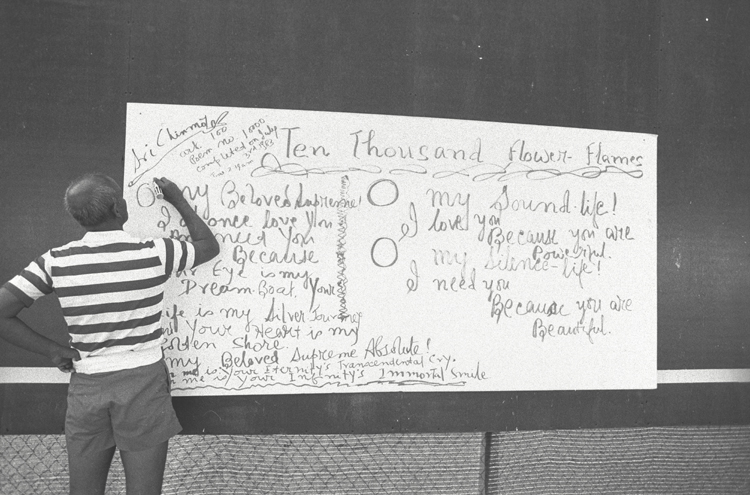 Sri Chinmoy
Vol. 100
Poem No. 10,000
completed on July
3rd 1983
Ten Thousand Flower-Flames
O my Beloved Supreme!
I once love You
need You
Because
Eye is my
Dream-Boat, Your
Life is my Silver Journey
Your Heart is my
Golden Shore.
my Beloved Supreme Absolute!
me is Your Eternity's Transcendental Cry.
me is Your Infinity's Immortal Smile
O my Sound-life!
I love you
Because you are
Powerful.
O my Silence-life!
I need you
Because you are
Beautiful.